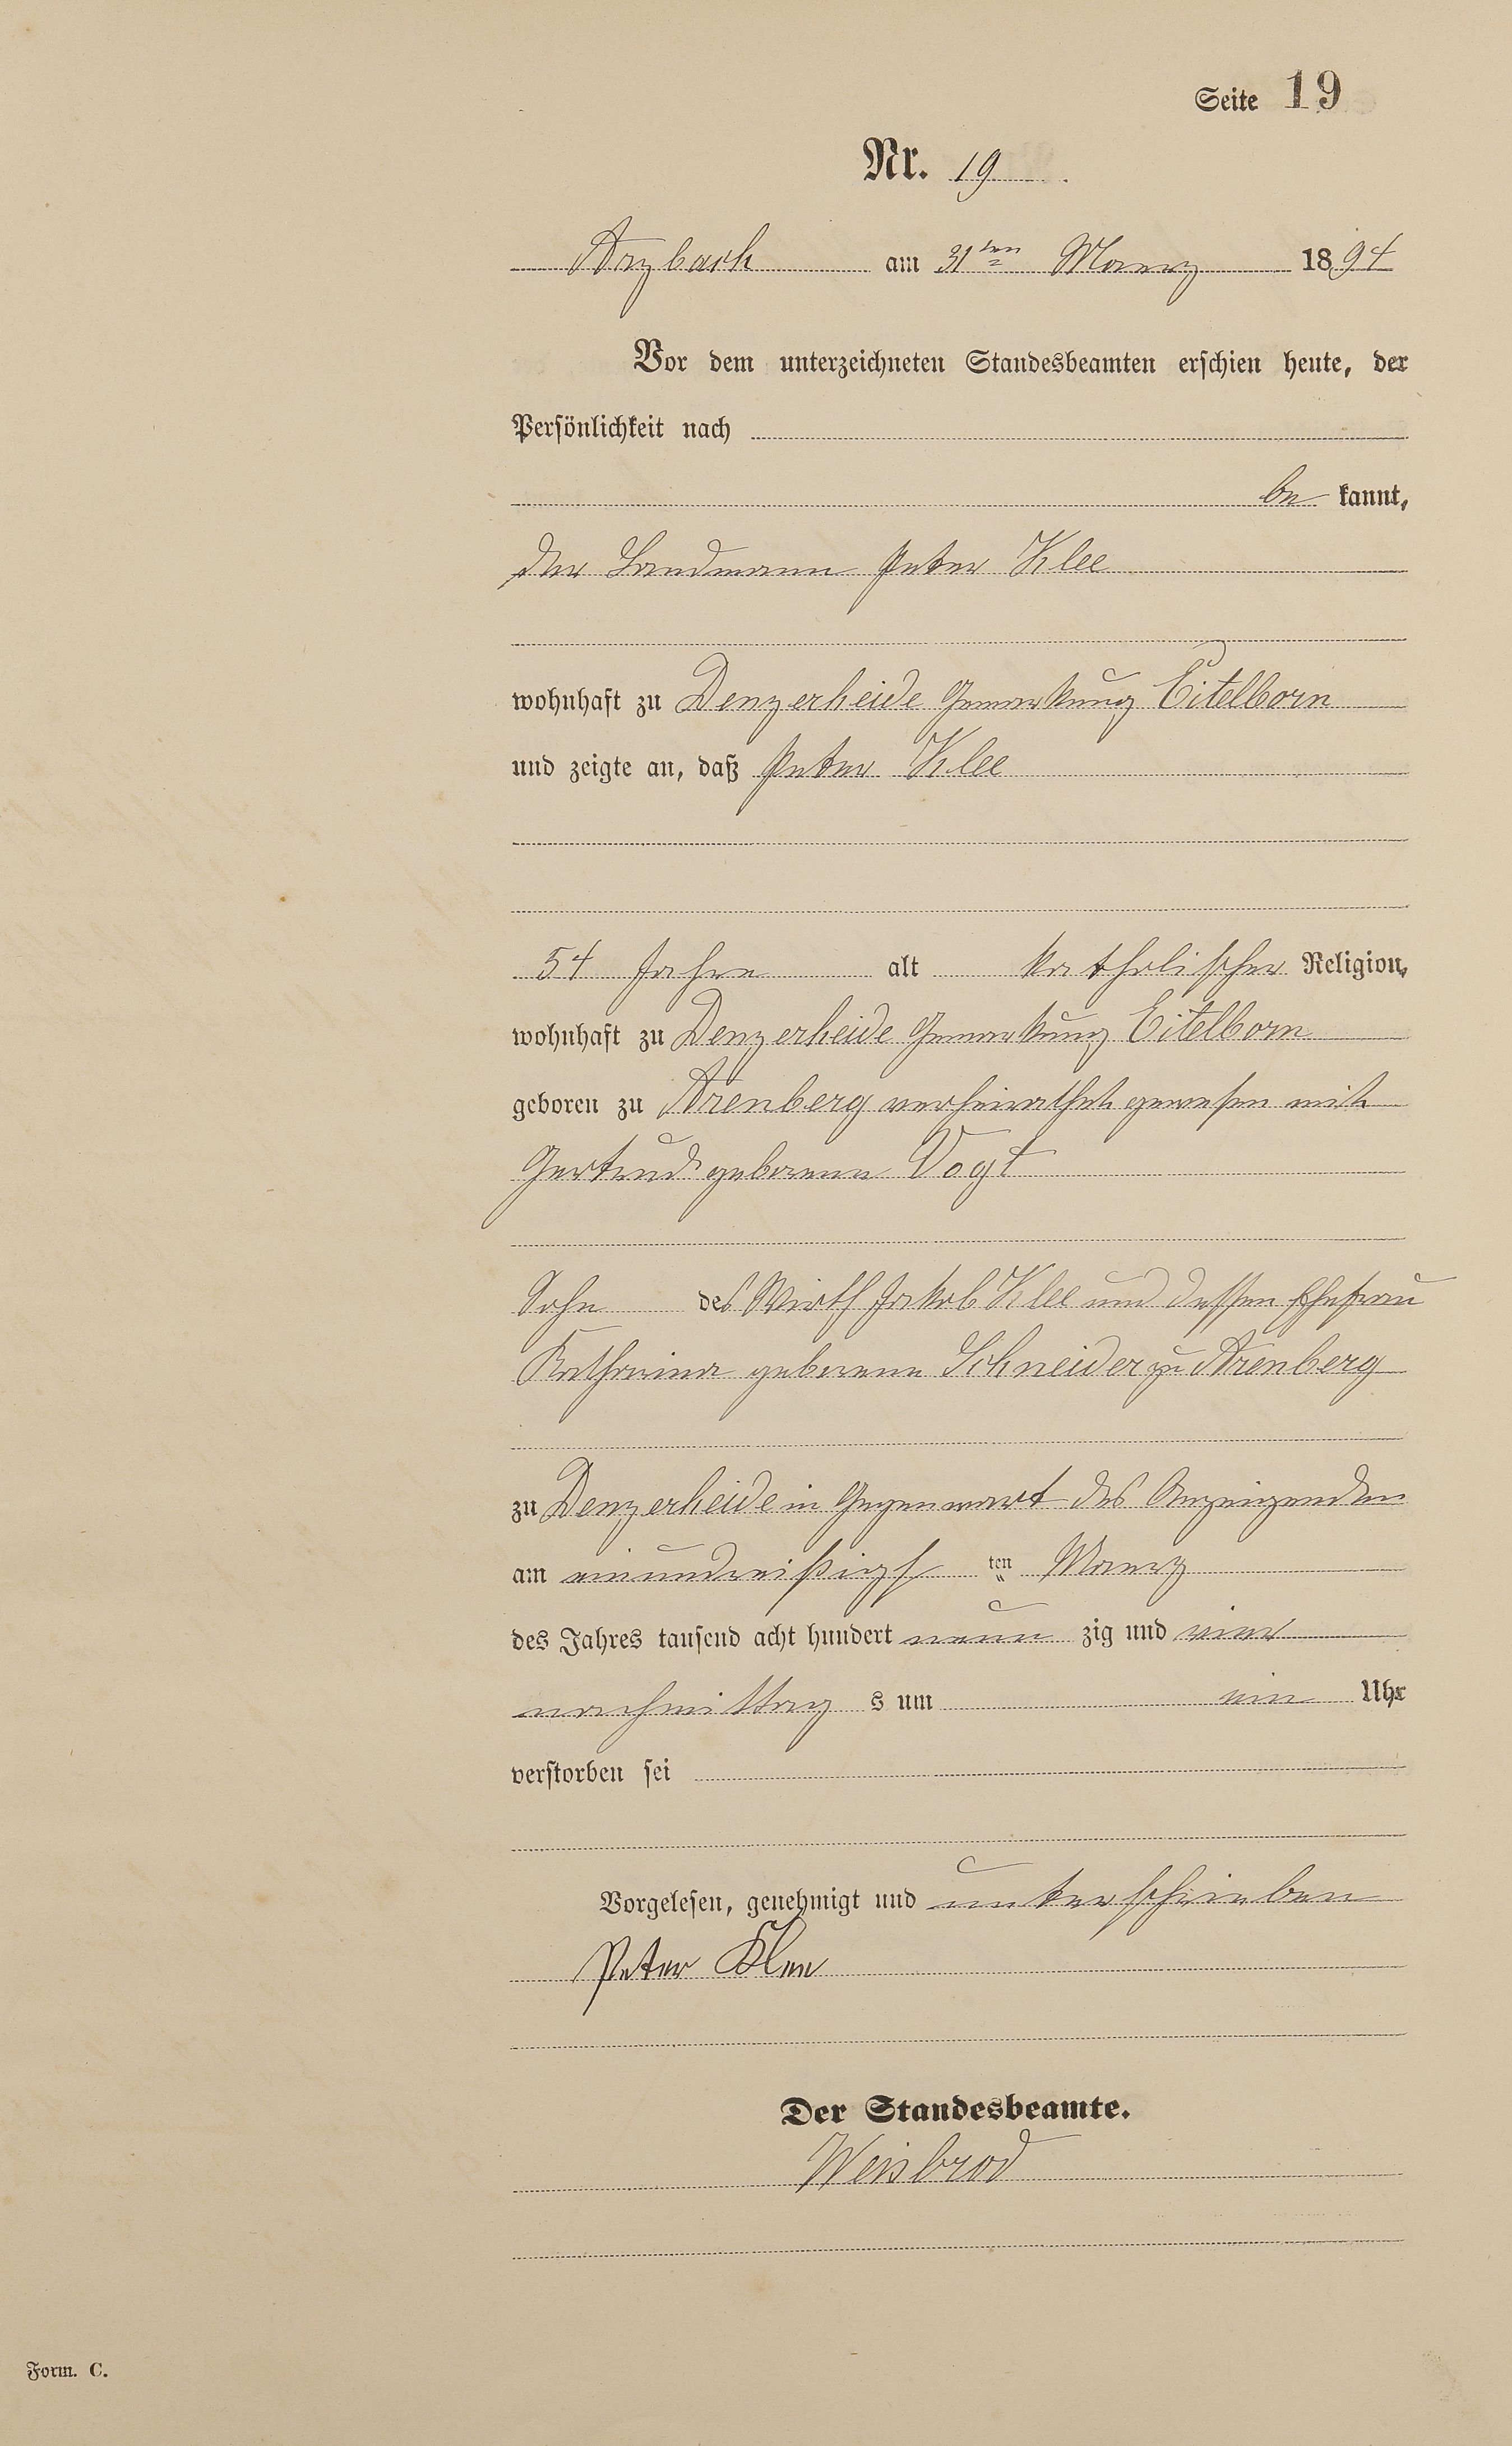 Seite 19
Nr. 19
Arzbach am 31ten Maerz 1894
Vor dem unterzeichneten Standesbeamten erschien heute, der
Persönlichkeit nach
be kannt,
der Landmann Peter Klee
wohnhaft zu Denzerheide Gemarkung Eitelborn
und zeigte an, daß Peter Klee
54 Jahre alt katholischer Religion,
wohnhaft zu Denzerheide Gemarkung Eitelborn
geboren zu Arenberg verheirathet gewesen mit
Gertrud geborene Vogt
Sohn des Wirth Jakob Klee und dessen Ehefrau
Katharina geborene Schneider zu Arenberg
zu Denzerheide in Gegenwart des Anzeigenden
am einunddreißigs ten Maerz
des Jahres tausend acht hundert neun zig und vier
nachmittag s um ein Uhr
verstorben sei
Vorgelesen, genehmigt und unterschrieben
Peter Klee
Der Standesbeamte.
Weisbrod
Form. C.